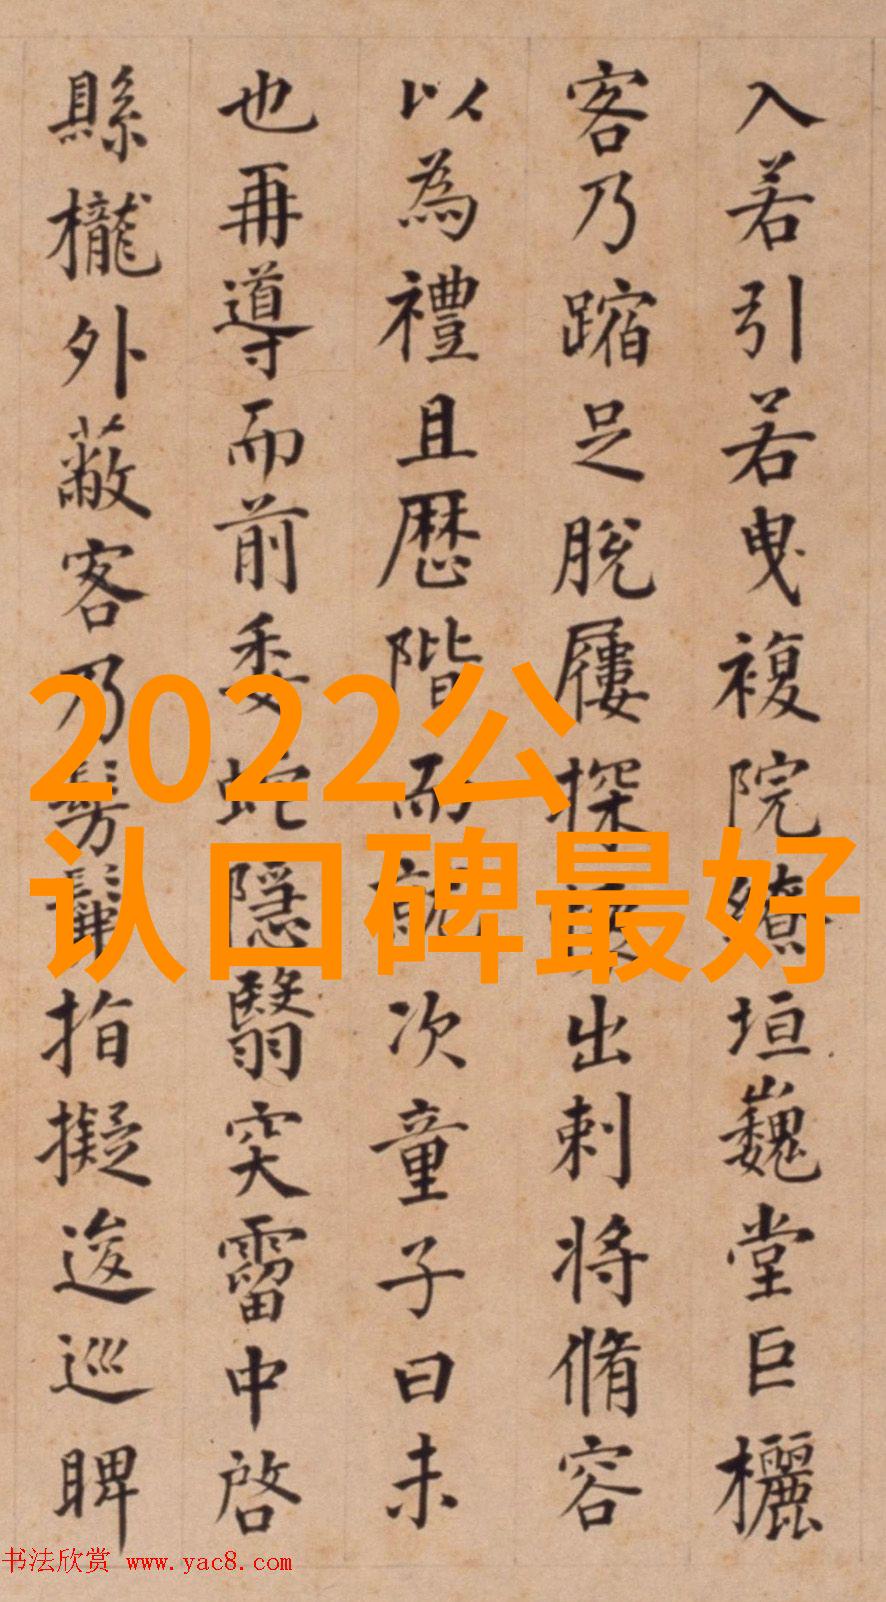 入若引若曳複院繚垣巍堂巨欐
客乃蹜足脫屨探出刺將脩容
以為禮且歷階而就次童子曰未
也再導而前委蛇隱翳穾霤中啓
縣櫳外蔽客乃髣髴指擬逡巡睥
2022公
认口碑最好
书法欣赏 www.yac8.com